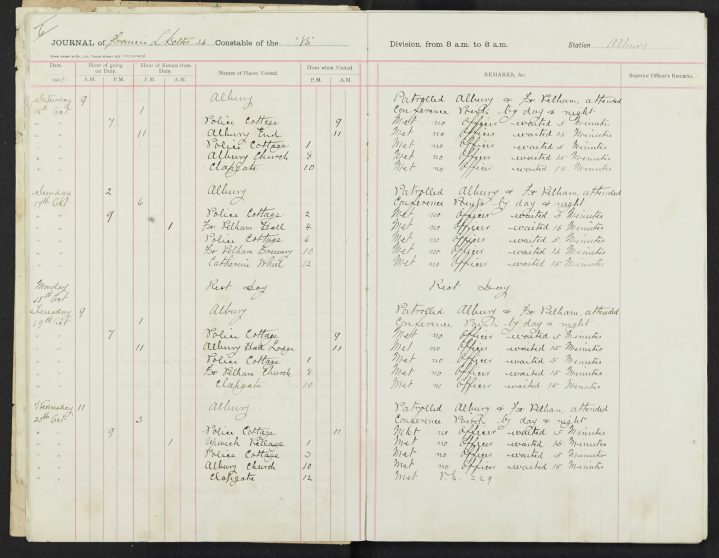 JOURNAL of Francis L Constable of the "15" Division, from 8 a.m. to 8 a.m. Station Albury
Date. Hour of going on Duty. Hour of Return from Duty. Names of Places Visited. Hour when Visited. REMARKS, &c. Superior Officer's Remarks.
A.M. P.M. A.M. P.M. P.M. A.M.
Saturday 9 Albury Patrolled Albury & Fx Pelham, attended
16th Oct 1 Conference Points by day & night
" " 7 Police Cottage 9 Met no Officer waited 5 Minutes
" " 11 Albury End 11 Met no Officer waited 15 Minutes
" " Police Cottage 1 Met no Officer waited 5 Minutes
" " Albury Church 8 Met no Officer waited 15 Minutes
" " Clapgate 10 Met no Officer waited 15 Minutes
Sunday 2 Albury Patrolled Albury & Fx Pelham, attended
17th Oct 6 Conference Points by day & night
" " 9 Police Cottage 2 Met no Officer waited 5 Minutes
" " 1 Fx Pelham Hall 4 Met no Officer waited 15 Minutes
" " Police Cottage 6 Met no Officer waited 5 Minutes
" " Fx Pelham Brewery 10 Met no Officer waited 15 Minutes
" " Catherine Wheel 12 Met no Officer waited 15 Minutes
Monday Rest Day Rest Day
18th Oct
Tuesday 9 Albury Patrolled Albury & Fx Pelham, attended
19th Oct 1 Conference Points by day & night
" " 7 Police Cottage 9 Met no Officer waited 5 Minutes
" " 11 Albury Hall Lodge 11 Met no Officer waited 15 Minutes
" " Police Cottage Met no Officer waited 5 Minutes
" " Fx Pelham Church 8 Met no Officer waited 15 Minutes
" " Clapgate 10 Met no Officer waited 15 Minutes
Wednesday 11 Albury Patrolled Albury & Fx Pelham, attended
20th Oct 3 Conference Points by day & night
" " 9 Police Cottage 11 Met no Officer waited 5 Minutes
" " 1 Upwick Village Met no Officer waited 15 Minutes
" " Police Cottage 3 Met no Officer waited 5 Minutes
" " Albury Church 10 Met no Officer waited 15 Minutes
" " Clapgate 12 Met P.S. 229